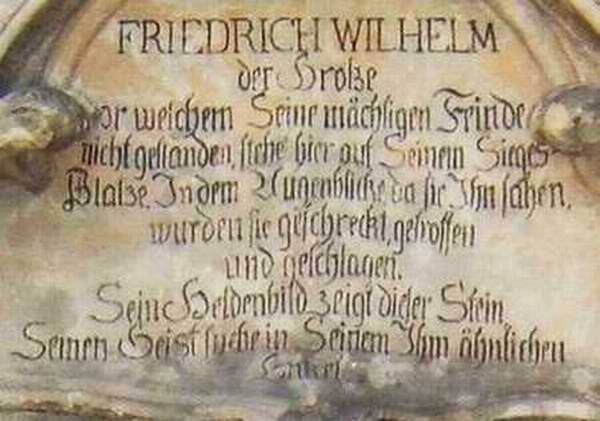 FRIEDRICH WILHELM
der Große
vor welchem Seine mächtigen Feinde
nicht gestanden, stehe hier auf Seinem Sieges-
Platze. In dem Augenblicke, da sie Ihn sahen,
wurden sie geschreckt, getroffen
und geschlagen.
Sein Heldenbild zeigt dieser Stein
Seinen Geist suche in Seinem Ihm ähnlichen
Enkel.